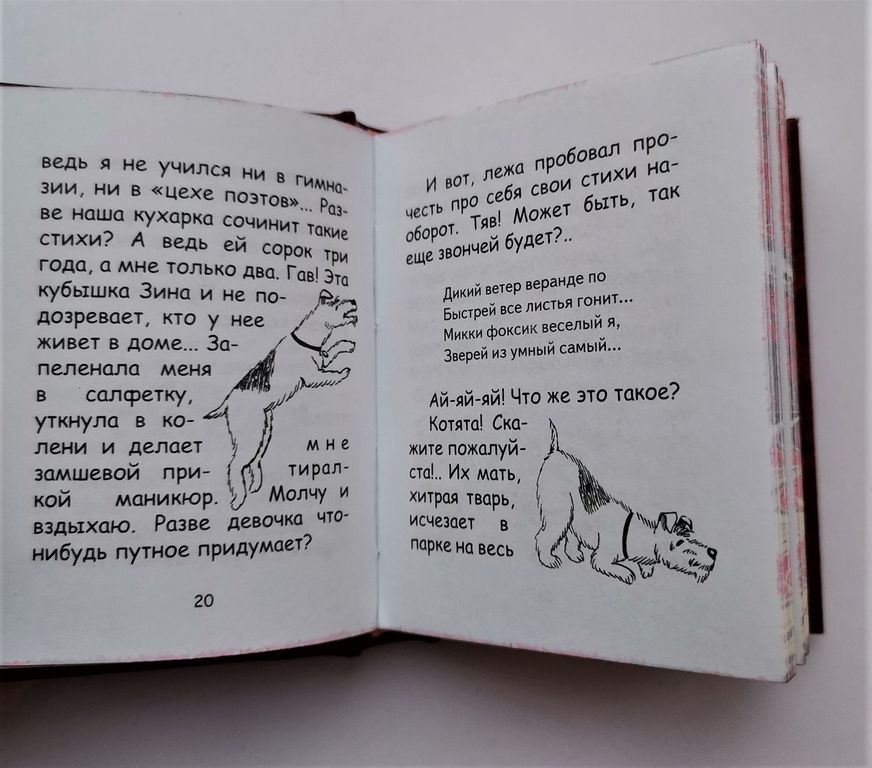 ведь я не учился ни в гимна-
зии, ни в «цехе поэтов»... Раз-
ве наша кухарка сочинит такие
стихи? А ведь ей сорок три
года, а мне только два. Гав! Эта
кубышка Зина и не по-
дозревает, кто у нее
живет в доме... За-
пеленала меня
в салфетку,
уткнула в ко-
лени и делает мне
замшевой при- тирал-
кой маникюр. Молчу и
вздыхаю. Разве девочка что-
нибудь путное придумает?
20
И вот, лежа пробовал про-
честь про себя свои стихи на-
оборот. Тяв! Может быть, так
еще звончей будет?..
Дикий ветер веранде по
Быстрей все листья гонит...
Микки фоксик веселый я,
Зверей из умный самый...
Ай-яй-яй! Что же это такое?
Котята! Ска-
жите пожалуй-
ста!.. Их мать,
хитрая тварь,
исчезает в
парке на весь